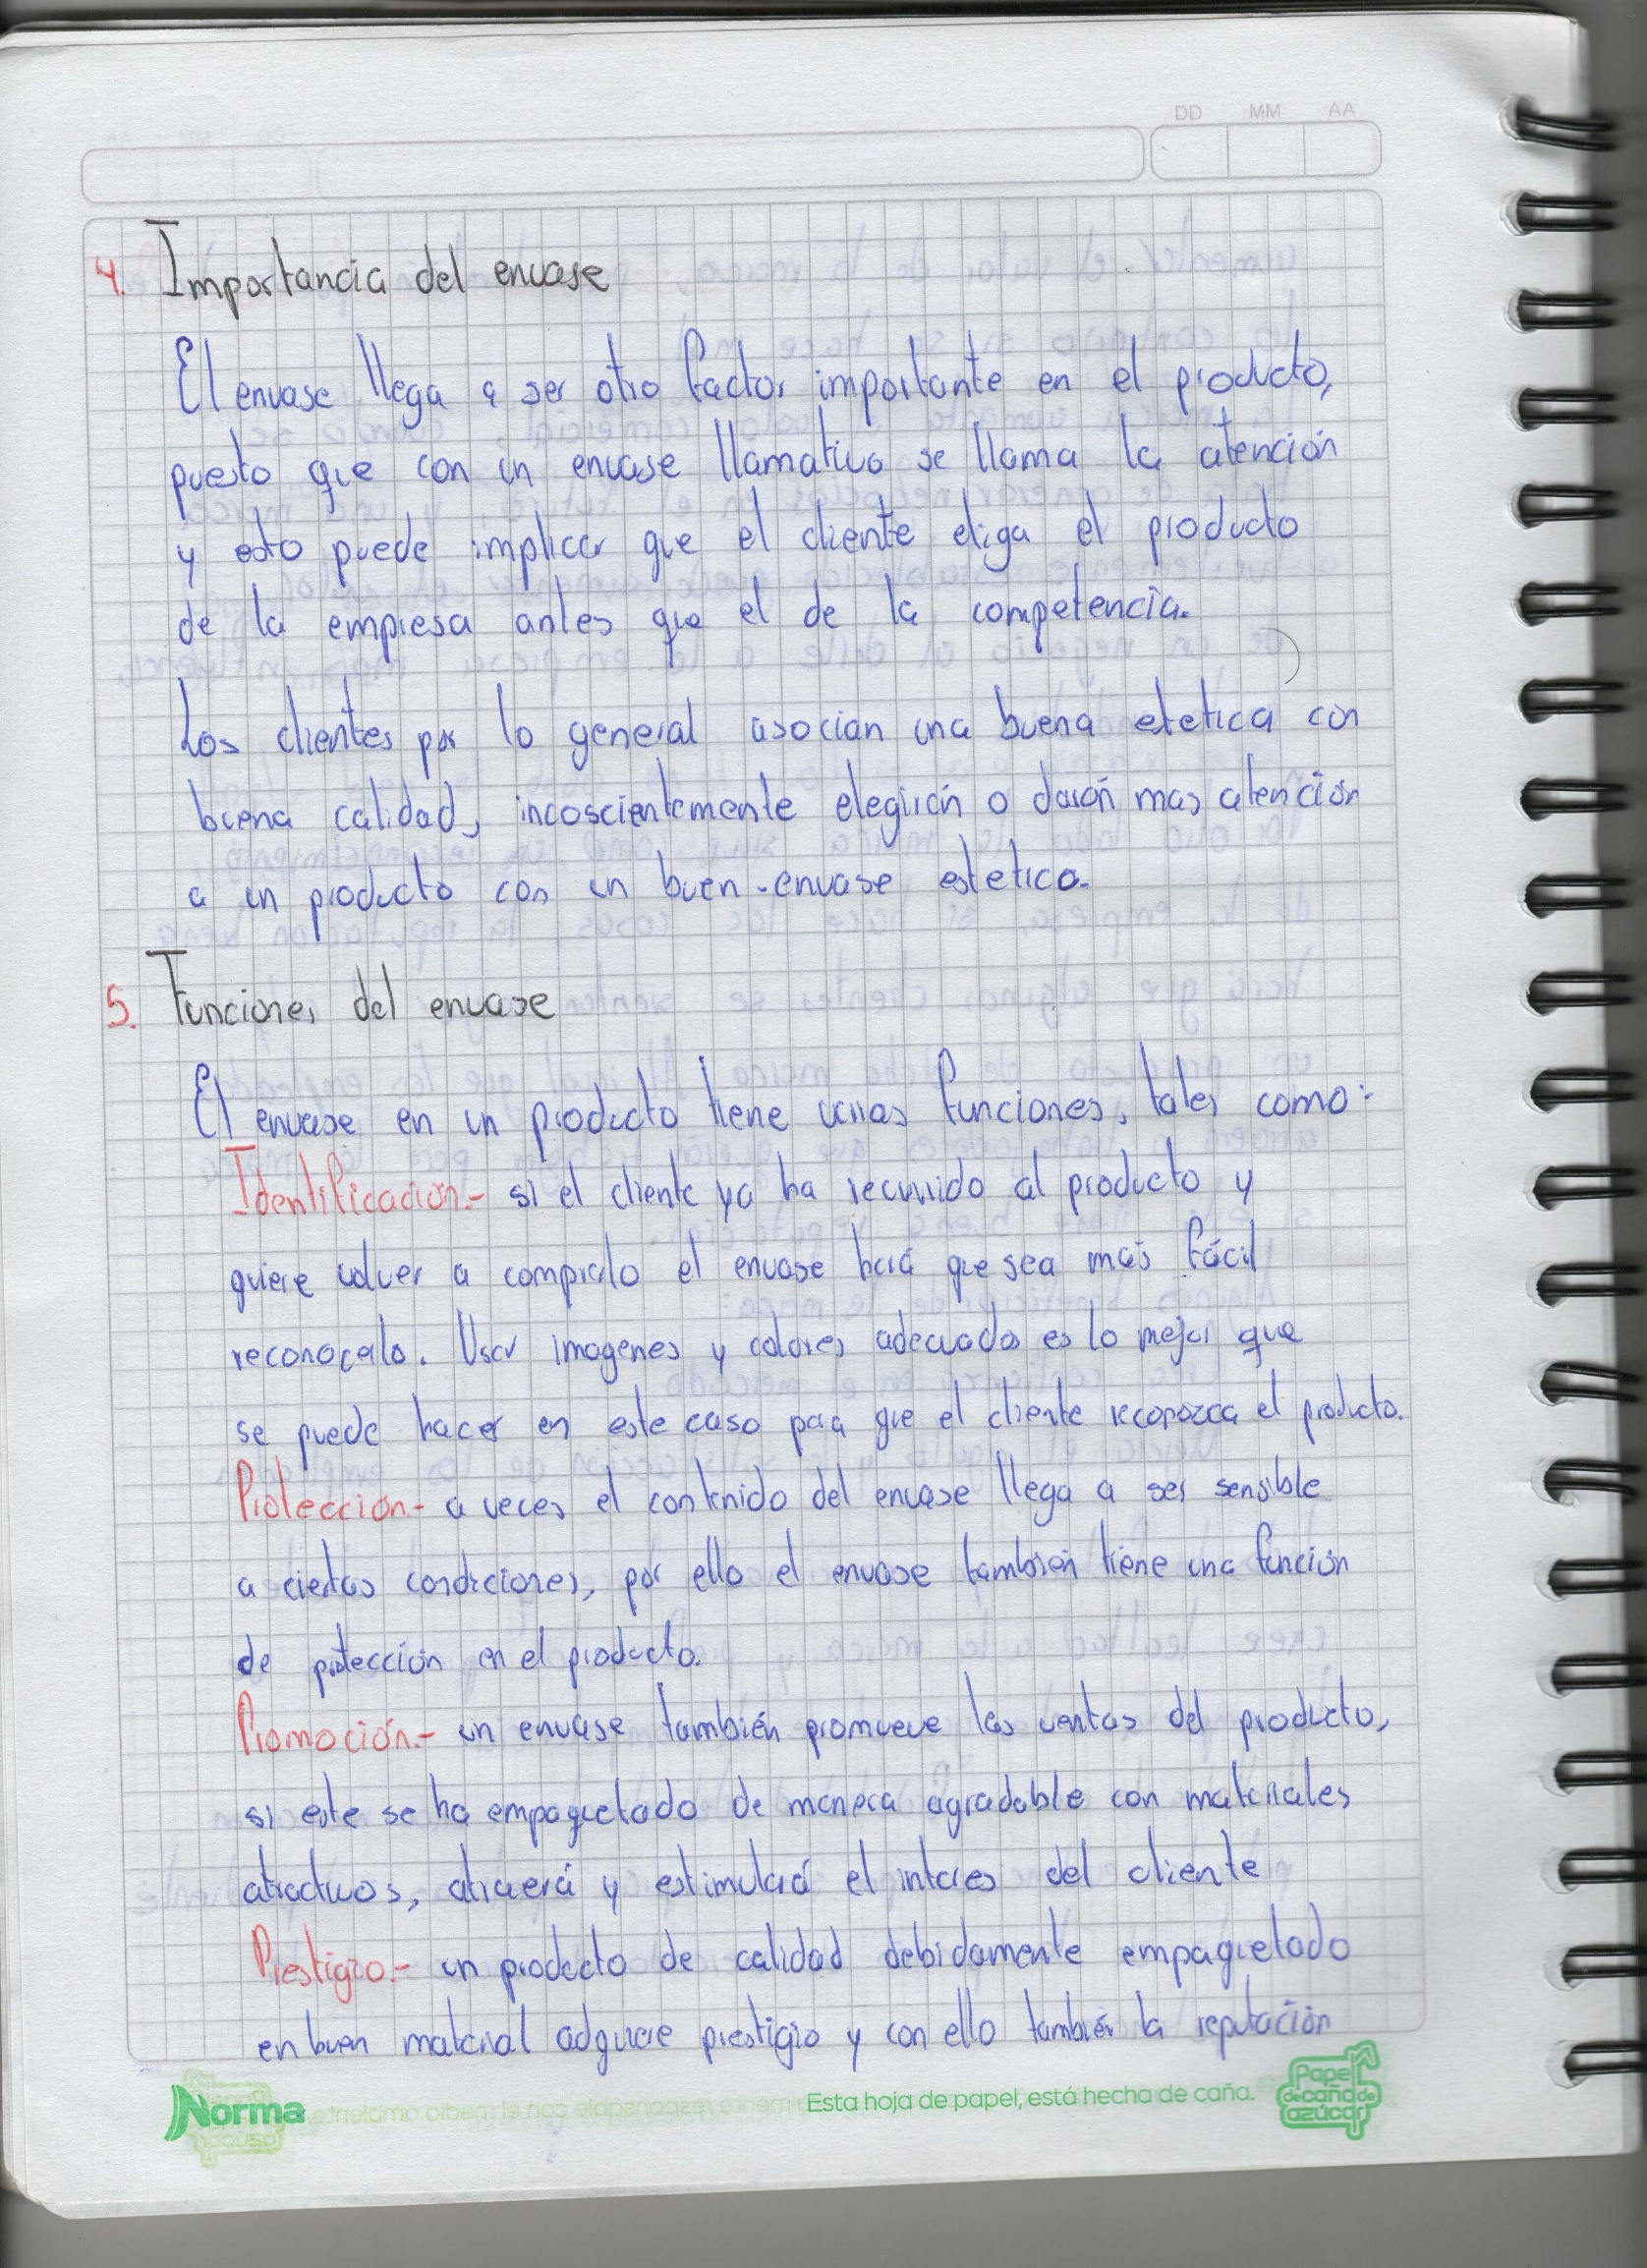 DD MM AA
4. Importancia del envase
El envase llega a ser otro factor importante en el producto,
puesto que con un envase llamativo se llama la atención
y esto puede implicar que el cliente eliga el producto
de la empresa antes que el de la competencia.
Los clientes por lo general asocian una buena estetica con
buena calidad, incoscientemente elegirán o darán mas atención
a un producto con un buen envase estetico.
5. Funciones del envase
El envase en un producto tiene varias funciones, tales como:
Identificación.- si el cliente ya ha recurrido al producto y
quiere volver a comprarlo el envase hará que sea más fácil
reconocerlo. Usar imagenes y colores adecuados es lo mejor que
se puede hacer en este caso para que el cliente reconozca el producto.
Protección.- a veces el contenido del envase llega a ser sensible
a ciertas condiciones, por ello el envase también tiene una función
de protección en el producto.
Promoción.- un envase también promueve las ventas del producto,
si este se ha empaquetado de manera agradable con materiales
atractivos, atraerá y estimulará el interes del cliente
Prestigio.- un producto de calidad debidamente empaquetado
en buen material adquiere prestigio y con ello también la reputación
Norma
Esta hoja de papel, está hecha de caña.
Papel
de caña de
azúcar